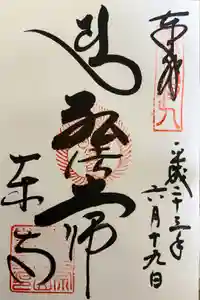 奉拝
平成二十三年
六月十九日
弘法大師
東寺